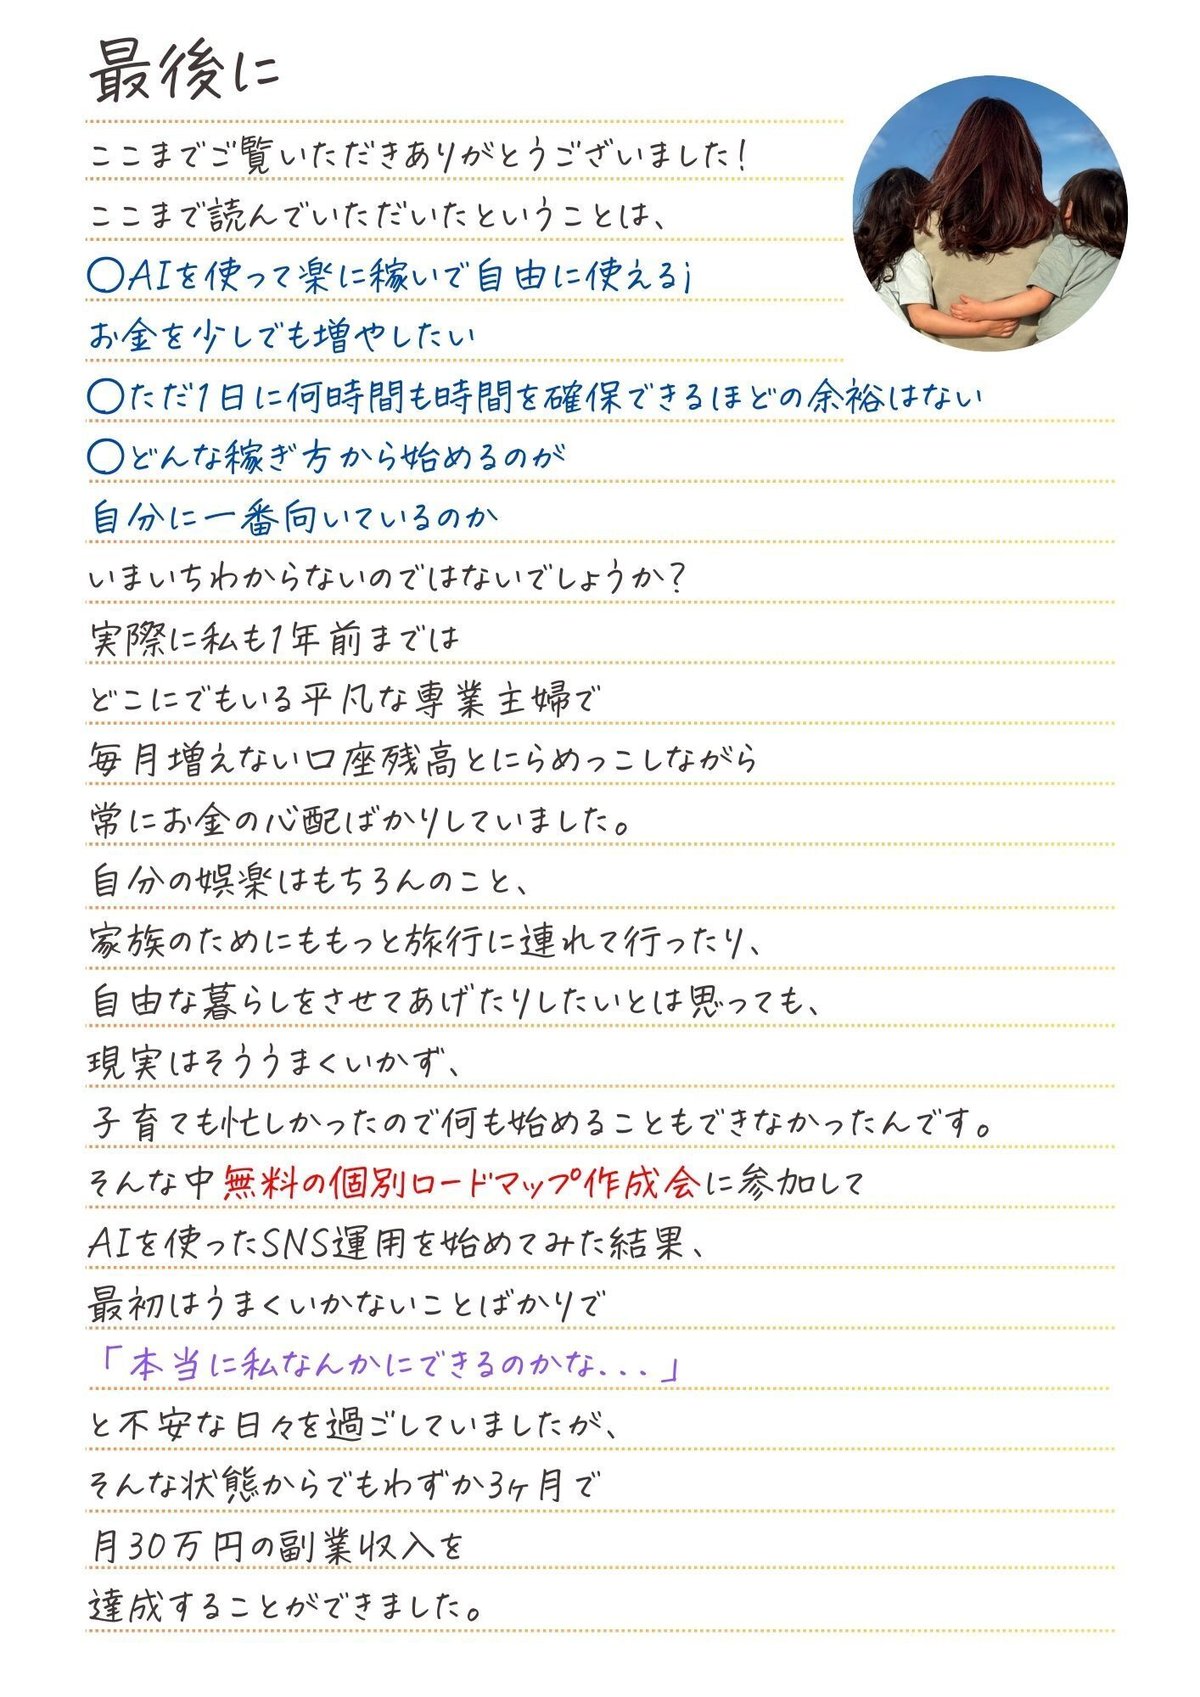 最後に
ここまでご覧いただきありがとうございました!
ここまで読んでいただいたということは、
○AIを使って楽に稼いで自由に使えるj
お金を少しでも増やしたい
○ただ1日に何時間も時間を確保できるほどの余裕はない
○どんな稼ぎ方から始めるのが
自分に一番向いているのか
いまいちわからないのではないでしょうか?
実際に私も1年前までは
どこにでもいる平凡な専業主婦で
毎月増えない口座残高とにらめっこしながら
常にお金の心配ばかりしていました。
自分の娯楽はもちろんのこと、
家族のためにももっと旅行に連れて行ったり、
自由な暮らしをさせてあげたりしたいとは思っても、
現実はそううまくいかず、
子育ても忙しかったので何も始めることもできなかったんです。
そんな中無料の個別ロードマップ作成会に参加して
AIを使ったSNS運用を始めてみた結果、
最初はうまくいかないことばかりで
「本当に私なんかにできるのかな...」
と不安な日々を過ごしていましたが、
そんな状態からでもわずか3ヶ月で
月30万円の副業収入を
達成することができました。